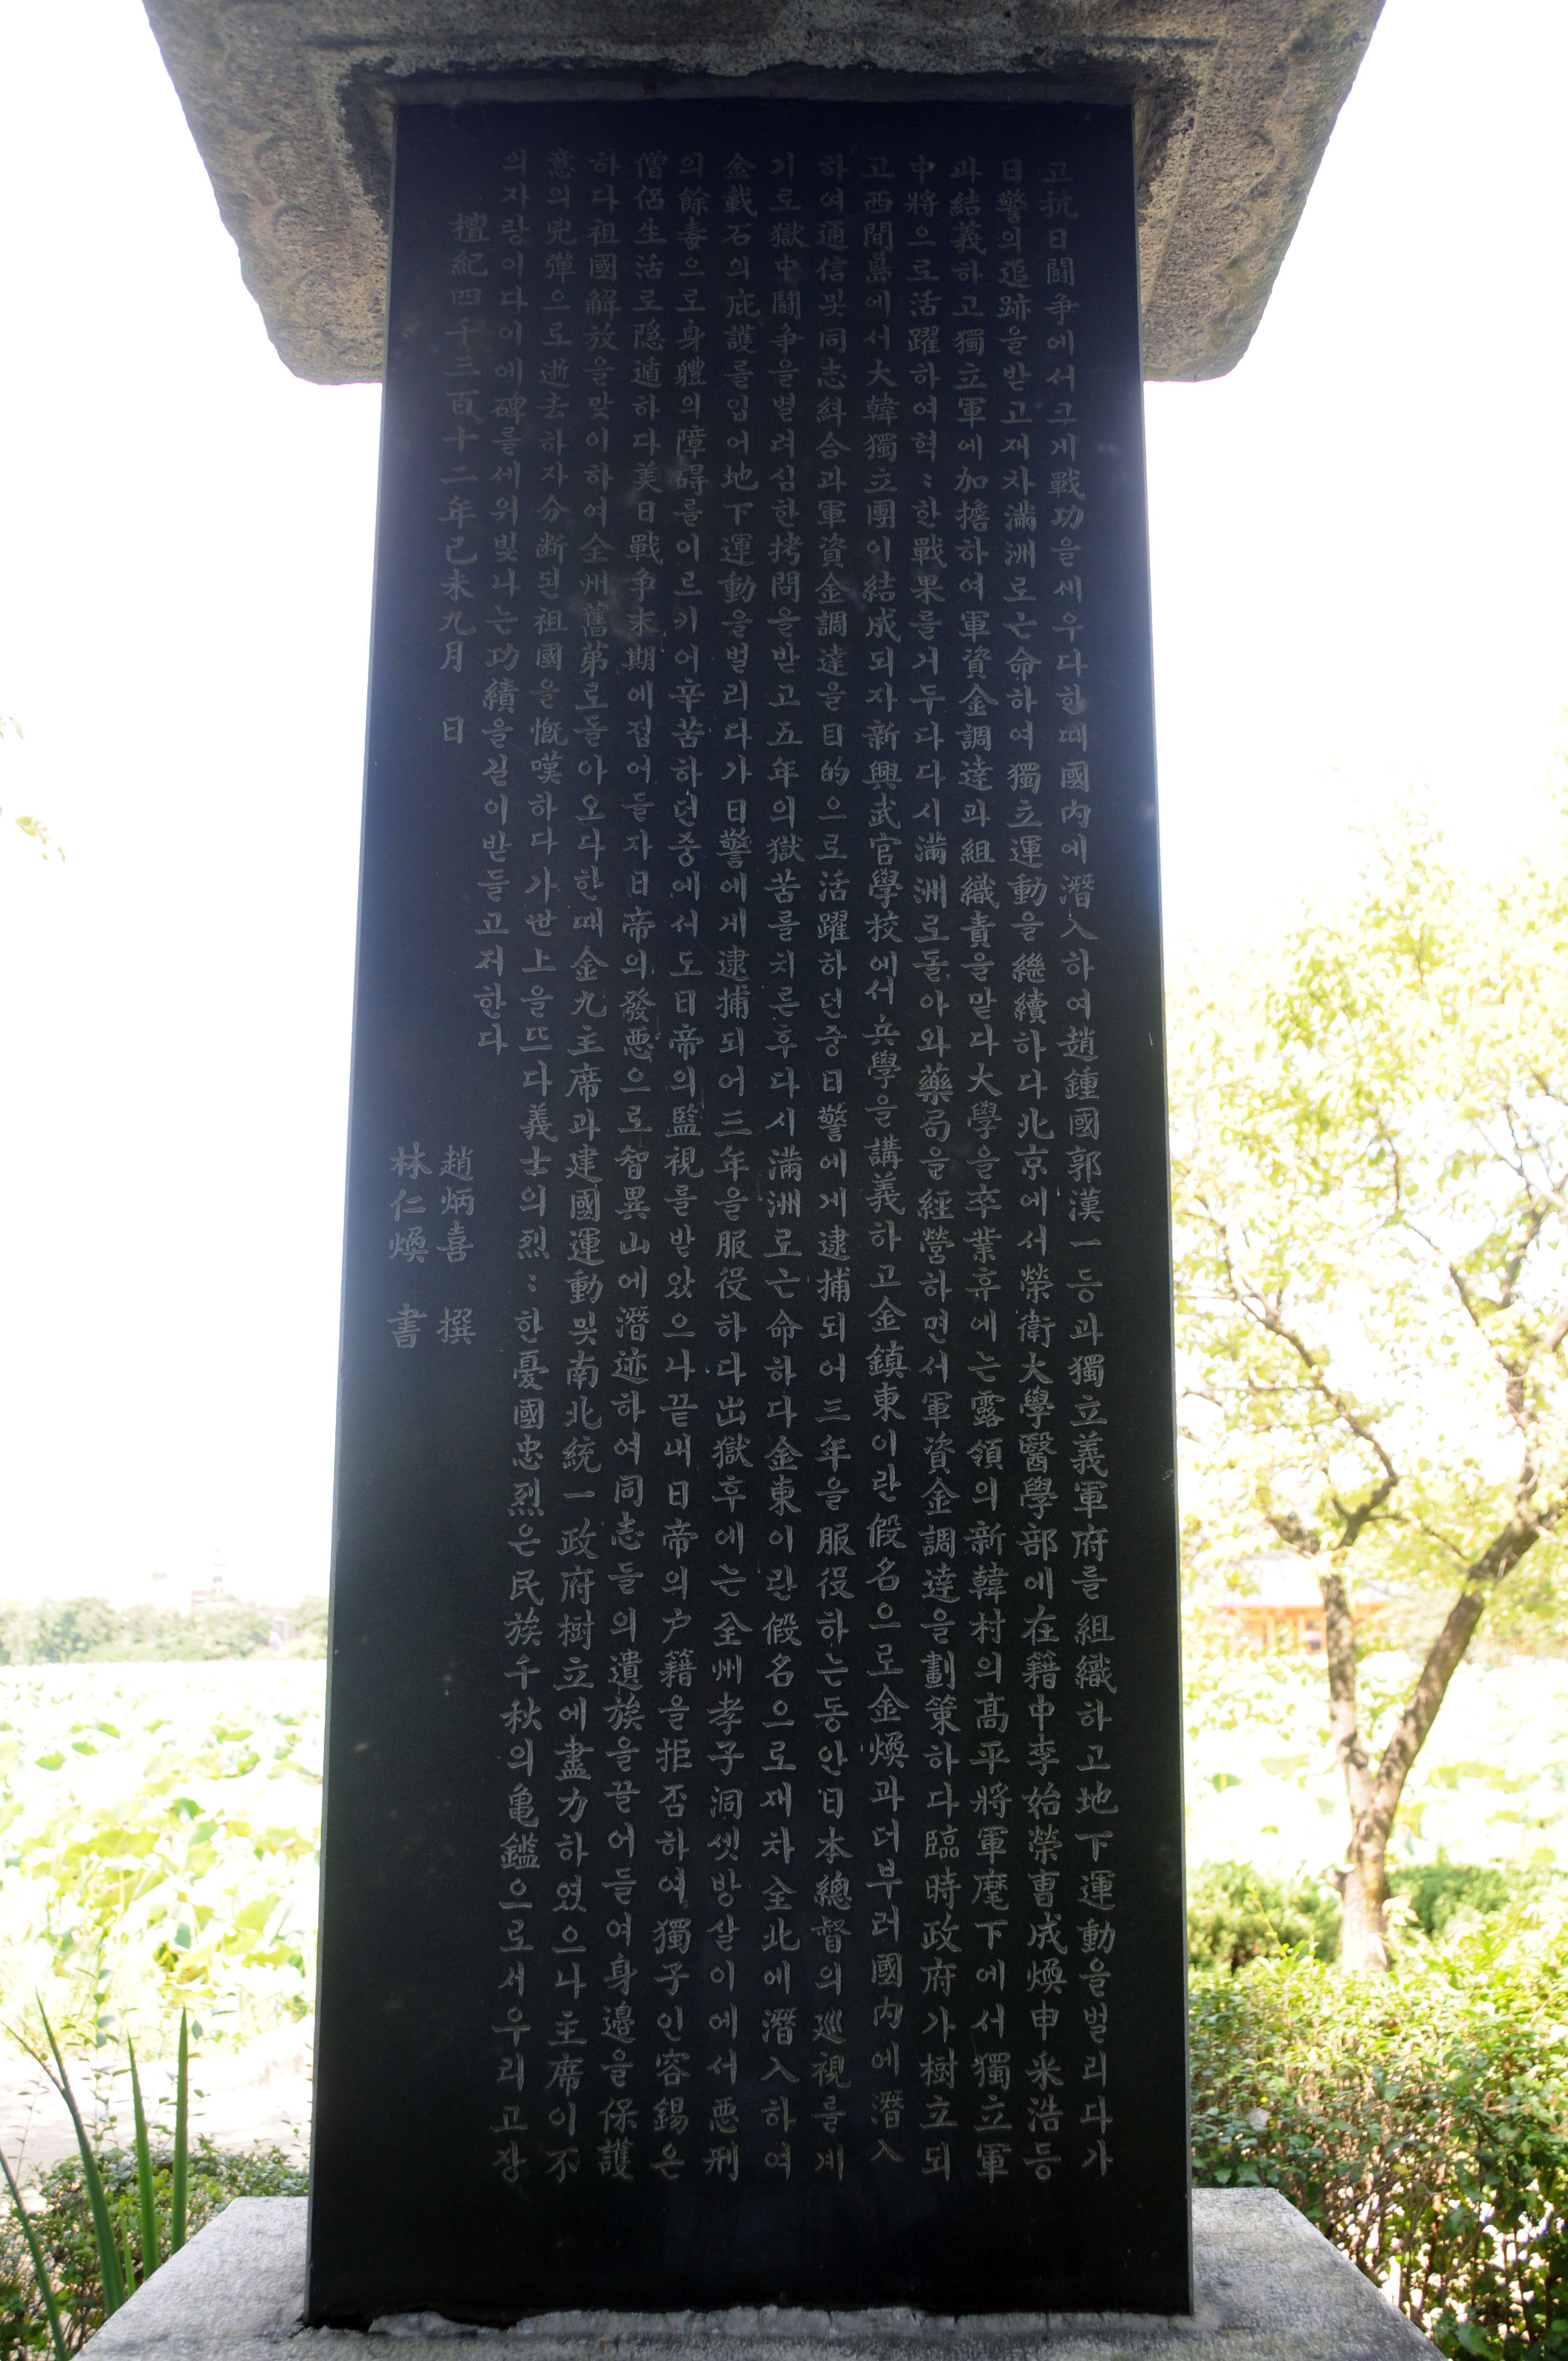 고抗日鬪争에서크게戰功을세우다한때國内에潛入하여趙鍾國郭漢一等과獨立義軍府를組織하고地下運動을벌리다가
日警의追跡을받고재차滿洲로亡命하여獨立運動을繼續하다北京에서榮衛大學醫學部에在籍中李始榮曺成煥申采浩등
과結義하고獨立軍에加擔하여軍資金調達과組織責을맡다大學을卒業휴에는露領의新韓村의高平將軍麾下에서獨立軍
中將으로活躍하여혁：한戰果를거두다다시滿洲로돌아와藥局을經營하면서軍資金調達을劃策하다臨時政府가樹立되
고西間島에서大韓獨立團이結成되자新興武官學校에서兵學을講義하고金鎮東이란假名으로金煥과더부러國内에潛入
하여通信및同志糾合과軍資金調達을目的으로活躍하던중日警에게逮捕되어三年을服役하는동안日本總督의巡視를계
기로獄中鬪争을별려심한拷問을받고五年의獄苦를치른후다시滿洲로亡命하다金東이란假名으로재차全北에潛入하여
金載石의庇護를입어地下運動을벌리다가日警에게逮捕되어三年을服役하다出獄후에는全州孝子洞셋방살이에서悪刑
의餘毒으로身軆의障碍를이르키어辛苦하던중에서도日帝의監視를받았으나끝내日帝의戶籍을拒否하여獨子인容錫은
僧侶生活로隱遁하다美日戰争末期에접어들자日帝의發悪으로智異山에潛迹하여同志들의遺族을끌어들여身邊을保護
하다祖國解放을맞이하여全州舊第로돌아오다한때金九主席과建國運動및南北統一政府樹立에盡力하였으나主席이不
意의兇彈으로逝去하자分断된祖國을慨嘆하다가世上을뜨다義士의烈：한憂國忠烈은民族千秋의亀鑑으로서우리고장
의자랑이다이에碑를세워빛나는功績을길이받들고저한다
檀紀四千三百十二年己未九月　日
趙炳喜　撰
林仁煥　書